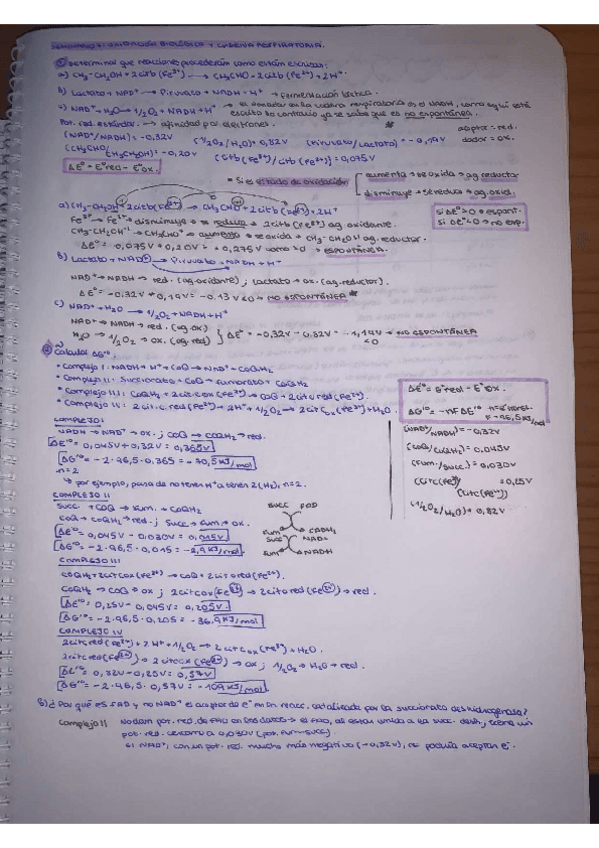 SEMINARIO 7: OXIDACIÓN BIOLÓGICA Y CADENA RESPIRATORIA.
① Determinar que reacciones procederán como están escritas:
a) CH3-CH2OH + 2citb(Fe3+) → CH3CHO + 2citb(Fe2+) + 2H+.
b) Lactato + NAD+ → Piruvato + NADH + H+ → Fermentación láctica.
c) NAD+ + H2O → 1/2O2 + NADH + H+ → el donador en la cadena respiratoria es el NADH, como aquí está
escrito lo contrario ya se sabe que es no espontánea.
Pot. red. estándar. → afinidad por electrones.
aceptor - red.
dador - ox.
(NAD+/NADH) = -0,32V (1/2O2/H2O) = 0,82V (Piruvato/Lactato) = -0,19V
(CH3CHO/CH3CH2OH) = -0,20V (citb(Fe3+)/citb(Fe2+)) = 0,075V
ΔE'º = E'ºred - E'ºox.
* Si el estado de oxidación
aumenta → se oxida → ag. reductor
disminuye → se reduce → ag. oxid.
a) CH3-CH2OH + 2citb(Fe3+) → CH3CHO + 2citb(Fe2+) + 2H+
si ΔE'º>0 → espont.
si ΔE'º<0 → no esp.
Fe3+ → Fe2+ → disminuye → se reduce → 2citb(Fe3+) ag. oxidante.
CH3-CH2OH → CH3CHO → aumenta → se oxida → CH3-CH2OH ag. reductor.
ΔE'º = 0,075V + 0,20V = +0,275V como >0 → ESPONTÁNEA
b) Lactato + NAD+ → Piruvato + NADH + H+
NAD+ → NADH → red. (ag. oxidante) ; Lactato → ox. (ag. reductor).
ΔE'º = -0,32V + 0,19V = -0,13V <0 → NO ESPONTÁNEA *
c) NAD+ + H2O → 1/2O2 + NADH + H+
NAD+ → NADH → red. (ag. ox)
H2O → 1/2O2 → ox. (ag. red) } ΔE'º = -0,32V - 0,82V = -1,14V → NO ESPONTÁNEA
<0
② Calcular ΔG'º.
• Complejo I: NADH + H+ + CoQ → NAD+ + CoQH2
• Complejo II: Succinato + CoQ → Fumarato + CoQH2
• Complejo III: CoQH2 + 2cit cox (Fe3+) → CoQ + 2cit c red (Fe2+).
• Complejo IV: 2cit. c. red (Fe2+) + 2H+ + 1/2O2 → 2cit cox (Fe3+) + H2O.
ΔE'º = E'ºred - E'ºox.
ΔG'º = -nF ΔE'º
F = 96,5 KJ/
COMPLEJO I
NADH → NAD+ → ox. ; CoQ → CoQH2 → red.
ΔE'º = 0,045V + 0,32V = 0,365V
ΔG'º = -2·96,5·0,365 = -70,5 KJ/mol
n=2
↳ por ejemplo, pasa de no tener H+ a tener 2 (H2), n=2.
(NAD+/NADH) = -0,32V
(CoQ/CoQH2) = 0,045V
(Fum./Succ) = 0,030V
(Citc(Fe3+)/Citc(Fe2+)) = 0,25V
(1/2O2/H2O) = 0,82V
COMPLEJO II
Succ. + CoQ → Fum. + CoQH2
CoQ → CoQH2 → red. ; Succ → Fum → ox.
ΔE'º = 0,045V - 0,030V = 0,015V
ΔG'º = -2·96,5·0,015 = -2,9 KJ/mol.
succ FAD
Fum FADH2
succ NAD+
Fum NADH
COMPLEJO III
CoQH2 + 2cit cox (Fe3+) → CoQ + 2cit c red (Fe2+).
CoQH2 → CoQ → ox ; 2cit cox (Fe3+) → 2cit c red (Fe2+) → red.
ΔE'º = 0,25V - 0,045V = 0,205V.
ΔG'º = -2·96,5·0,205 = -36,9 KJ/mol
COMPLEJO IV
2cit c red (Fe2+) + 2H+ + 1/2O2 → 2cit cox (Fe3+) + H2O.
2cit c red (Fe2+) → 2cit cox (Fe3+) → ox ; 1/2O2 → H2O → red.
ΔE'º = 0,82V - 0,25V = 0,57V
ΔG'º = -2·96,5·0,57V = -109 KJ/mol
b) ¿Por qué es FAD y no NAD+ el aceptor de e- en la reacc. catalizada por la succinato deshidrogenasa?
Complejo II No dan pot. red. de FAD en los datos → el FAD, al estar unido a la succ. desh., tiene un
pot. red. cercano a 0,030V (pot. fum-succ).
El NAD+, con un pot. red. mucho más negativo (-0,32V), no podría aceptar e-.